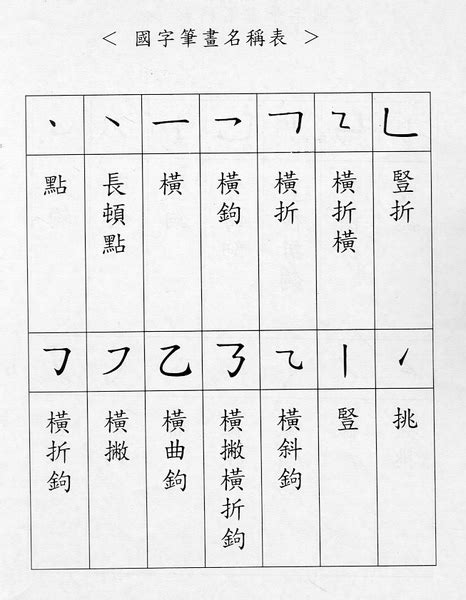 < 國字筆畫名稱表 >
丶 ㇔ 一 乛 ㇕ ㇅ ㇗
點
長頓點
橫
橫鉤
橫折
橫折橫
豎折
㇆ ㇇ 乙 ㇌ ⺄ 丨 ㇀
橫折鉤
橫撇
橫曲鉤
橫撇橫折鉤
橫斜鉤
豎
挑